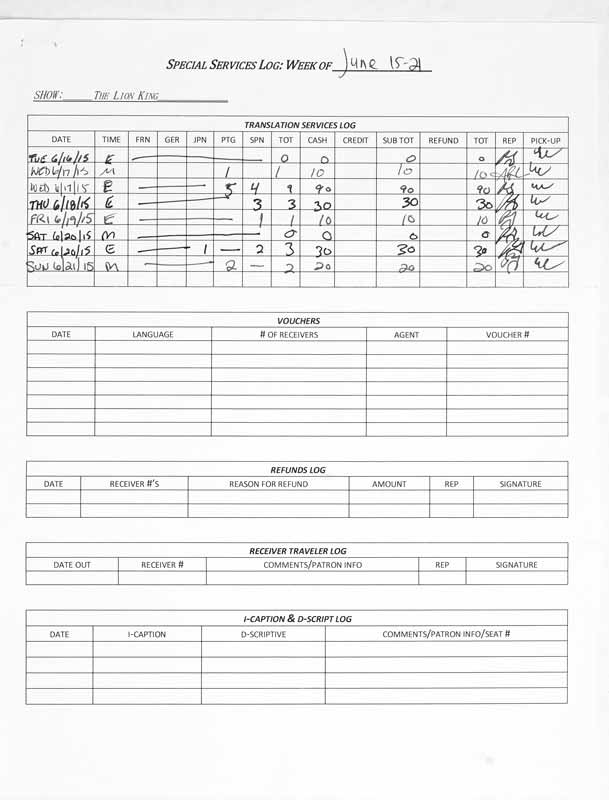 SPECIAL SERVICES LOG: WEEK OF June 15-21
SHOW: THE LION KING
TRANSLATION SERVICES LOG
DATE TIME FRN GER JPN PTG SPN TOT CASH CREDIT SUB TOT REFUND TOT REP PICK-UP
TUE 6/16/15 E 0 0 0 0
WED 6/17/15 M 1 1 10 10 10
WED 6/17/15 E 5 4 9 90 90 90
THU 6/18/15 E 3 3 30 30 30
FRI 6/19/15 E 1 1 10 10 10
SAT 6/20/15 M 0 0 0 0
SAT 6/20/15 E 1 — 2 3 30 30 30
SUN 6/21/15 M 2 — 2 20 20 20
VOUCHERS
DATE LANGUAGE # OF RECEIVERS AGENT VOUCHER #
REFUNDS LOG
DATE RECEIVER #'S REASON FOR REFUND AMOUNT REP SIGNATURE
RECEIVER TRAVELER LOG
DATE OUT RECEIVER # COMMENTS/PATRON INFO REP SIGNATURE
I-CAPTION & D-SCRIPT LOG
DATE I-CAPTION D-SCRIPTIVE COMMENTS/PATRON INFO/SEAT #